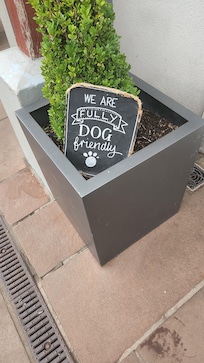 WE ARE
FULLY
DOG
friendly